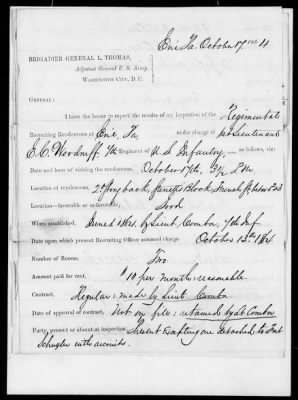 Erie Pa. October 17th 1864
BRIGADIER GENERAL L. THOMAS,
Adjutant General U. S. Army,
WASHINGTON CITY, D. C.
GENERAL:
I have the honor to report the results of my inspection of the Regimental
Recruiting Rendezvous at Erie, Pa, under charge of 1st Lieutenant
E. C. Woodruff 7th Regiment of U. S. Infantry, as follows, viz:
Date and hours of visiting the rendezvous, October 17th, 3 1/2 P.M.
Location of rendezvous, 2d Block, French St
Location—favorable or unfavorable, Good
When established, June 1 1864, by Lieut. 7th Inf
Date upon which present Recruiting Officer assumed charge October 13th 1864
Number of Rooms, Two
Amount paid for rent, $10 per month: reasonable.
Contract, Regular: made by Lieut.
Date of approval of contract, Not on file: retained by Lt
Party, present or absent at inspection, Present excepting one detached to Fort
Schuyler with recruits.